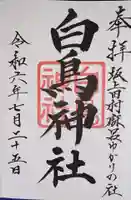 奉拝 坂上田村麻呂ゆかりの社
白鳥神社
令和六年七月二十五日